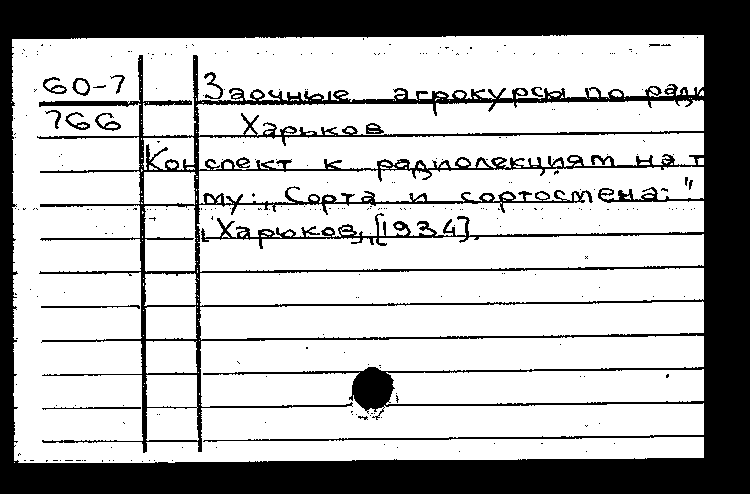 60-7 Заочные агрокурсы по ради
766 Харьков
Конспект к радиолекциям на т
му: „Сорта и сортосмена."
[Харьков], [1934].